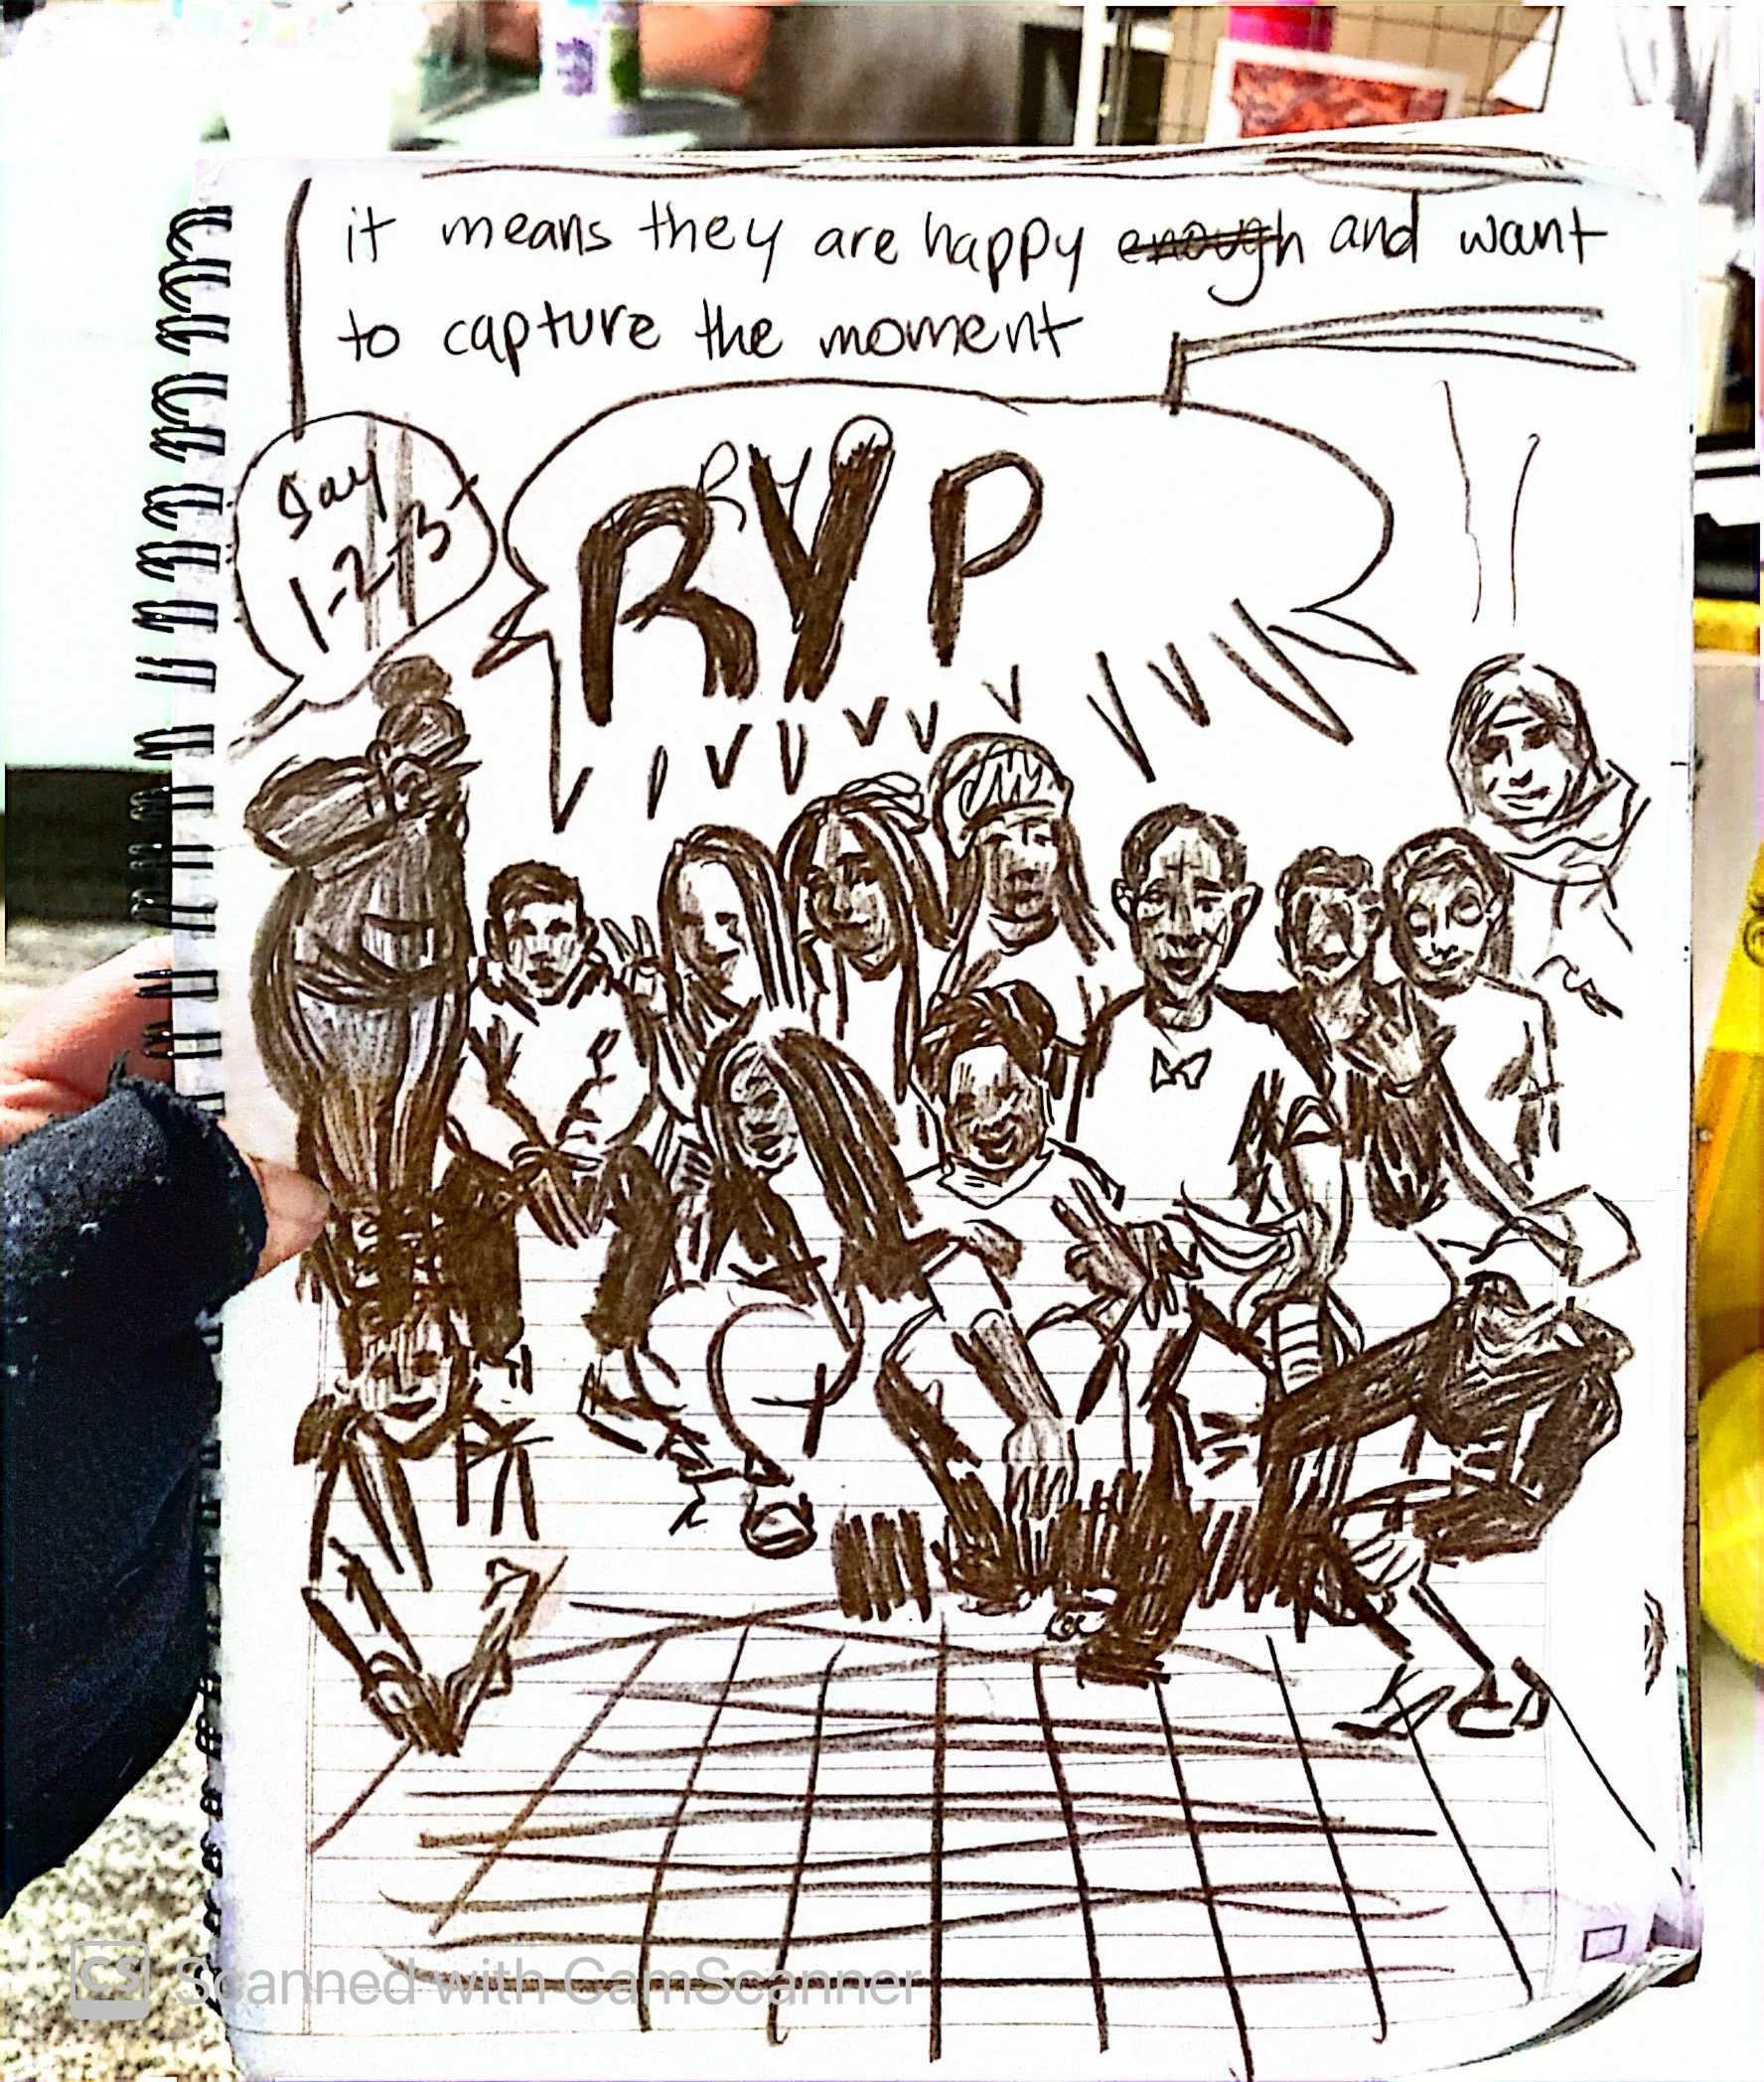 it means they are happy enough and want
to capture the moment
Say
1-2-3
RYP
RYP
CS Scanned with CamScanner